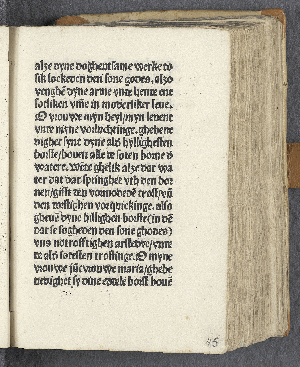 alze dyne doghentsame werke to
sik lockeden den sone godes, alzo
venghē dyne arme vnte herte ene
sotliken vmme in moderliker leue.
O vrouwe myn heyl/myn leuent
vnte myne vorluchtinge. ghebene
digher synt dyne als hyllighesten
borste/bouen alle te soten borne d
watere. Wēte ghelik alze dat wa
ter dat dar springhet vth den bor
nen/gift den vormodedē trost/vn
den trostighen vorquickinge. also
gheuē dyne hillighen borste(in dē
dat se sogheden den sone ghodes)
vns notroftighen artstedye/vnte
te als sotesten trostinge. O myne
vrouwe sūte vrouwe maria/ghebe
nedighet sy dine eddele borst bouē
85